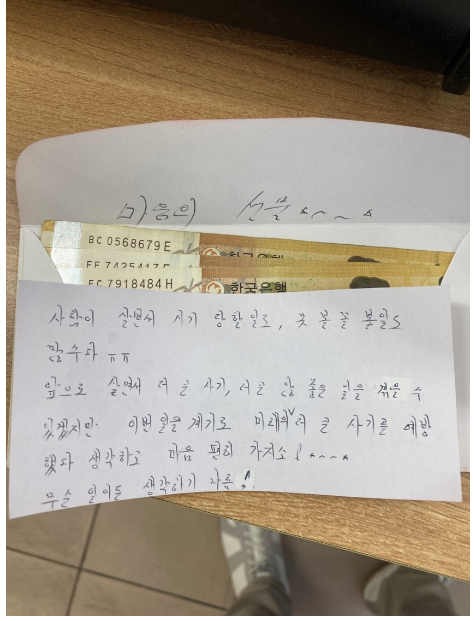 마음의 선물^~~^
BC 0568679 E
한국은행
EC 7918484 H
한국은행
사람이 살면서 사기 당할일도, 못 볼 꼴 볼일도
만수타 ㅠㅠ
앞으로 살면서 더 큰 사기, 더 큰 안 좋은 일을 겪을 수
있겠지만 이번 일을 계기로 미래의 더 큰 사기를 예방
했다 생각하고 마음 편히 가지소!^~~^
무슨 일이든 생각하기 나름!